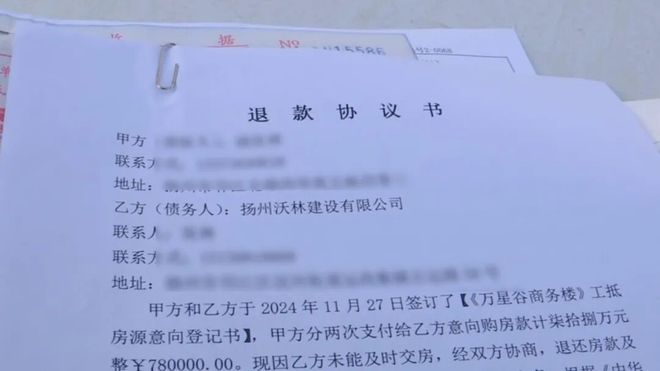 收 据 Nº 0015586
号2-0068
退 款 协 议 书
甲方
联系方
地址:
乙方（债务人）：扬州沃林建设有限公司
联系人
联系方
地址:
甲方和乙方于 2024 年 11 月 27 日签订了【《万星谷商务楼》工抵
房源意向登记书】，甲方分两次支付给乙方意向购房款计柒拾捌万元
整￥780000.00。现因乙方未能及时交房，经双方协商，退还房款及
根据《中华